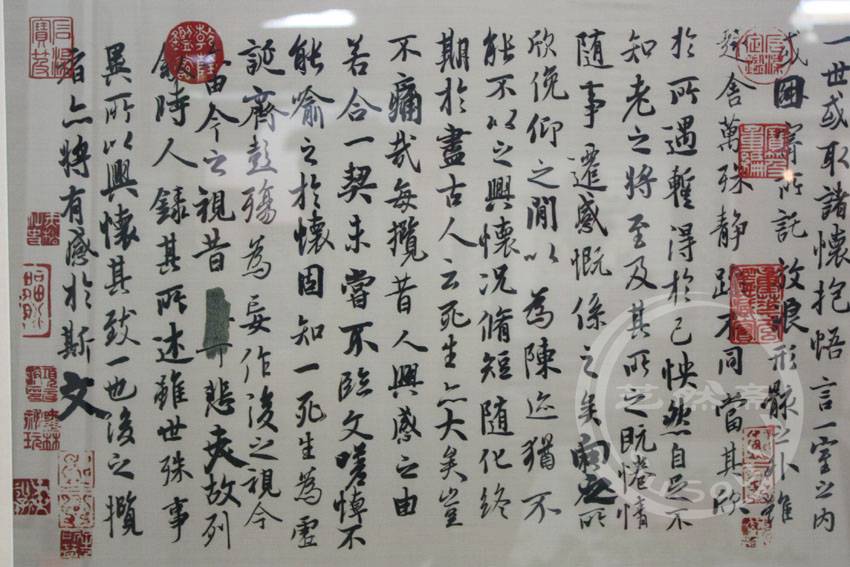 一世或取諸懷抱悟言一室之内
或因寄所託放浪形骸之外雖
趣舍萬殊靜躁不同當其欣
於所遇暫得於己怏然自足不
知老之將至及其所之既惓情
隨事遷感慨係之矣向之所
欣俛仰之閒以為陳迹猶不
能不以之興懷況脩短隨化終
期於盡古人云死生亦大矣豈
不痛哉每攬昔人興感之由
若合一契未嘗不臨文嗟悼不
能喻之於懷固知一死生為虛
誕齊彭殤為妄作後之視今
由今之視昔悲夫故列
叙時人錄其所述雖世殊事
異所以興懷其致一也後之攬
者亦將有感於斯文
艺然斋